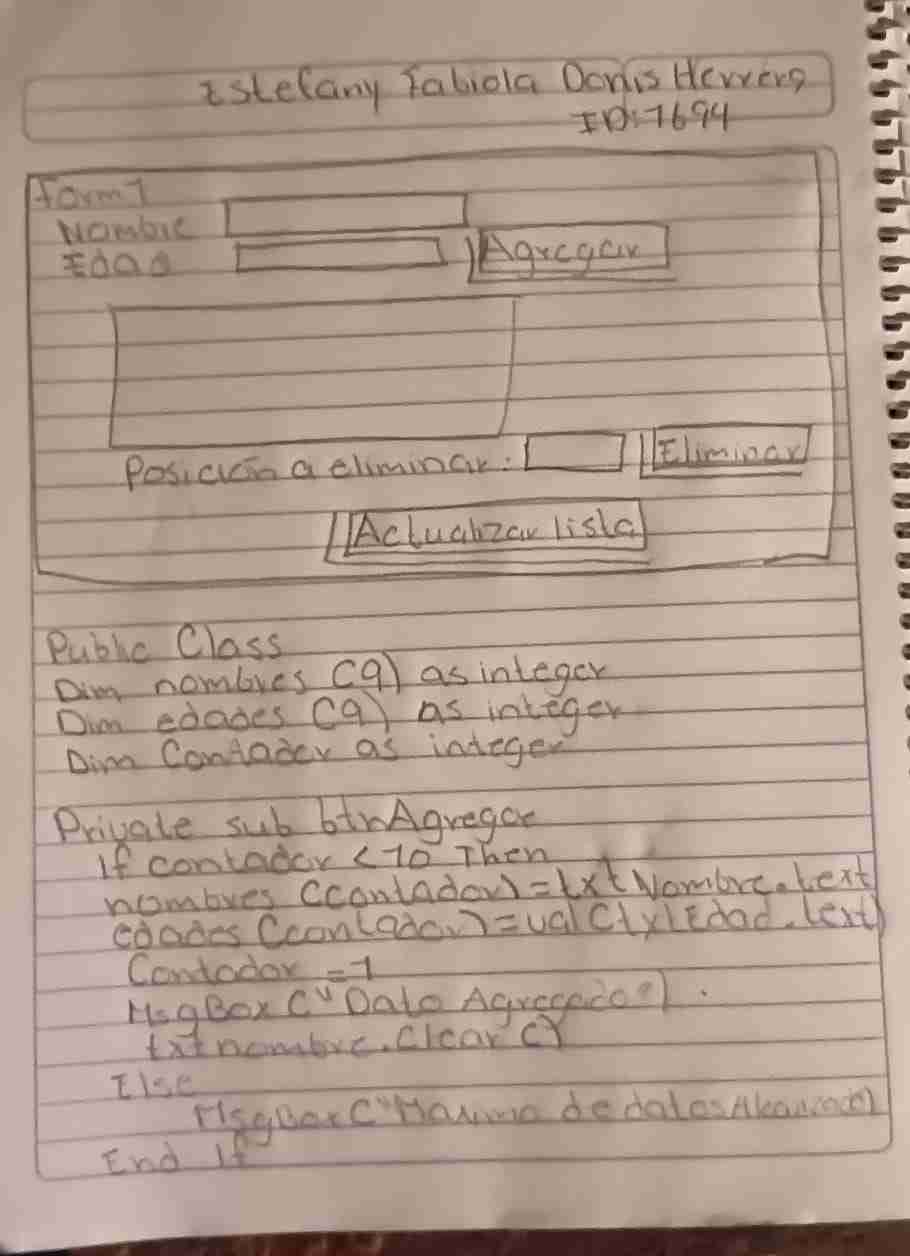 Estefany Fabiola Donis Herrera
ID:7694
Form1
Nombre
Edad
Agregar
Posición a eliminar:
Eliminar
Actualizar lista
Public Class
Dim nombres (9) as integer
Dim edades (9) as integer
Dim Contador as integer
Private sub btnAgregar
If contador < 10 Then
nombres (contador)=txtNombre.text
edades (contador)=val(txtEdad.text)
Contador =1
MsgBox ("Dato Agregado")
txtnombre.Clear()
Else
MsgBox ("Maximo de datos Alcanzado")
End If